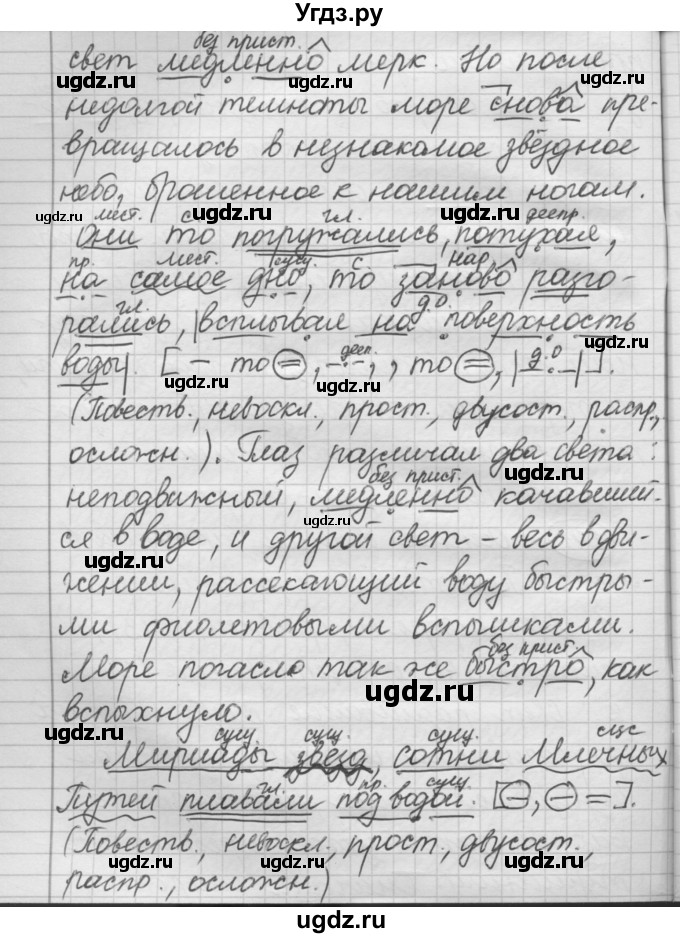 Угдз.ру
без прист.
свет медленно мерк. Но после
недолгой темноты море снова пре-
вращалось в незнакомое звёздное
небо, брошенное к нашим ногам.
мест. с гл. деепр.
Они то погружались, потухая,
пр. мест. сущ. с нар.
на самое дно, то заново разго-
гл. д.о.
рались, |всплывая на поверхность
воды|. [– то (=), деепр., то (=), |д.о|].
(Повеств., невоскл., прост., двусост., распр.,
осложн.). Глаз различал два света:
без прист.
неподвижный, медленно качавший-
ся в воде, и другой свет – весь в дви-
жении, рассекающий воду быстры-
ми фиолетовыми вспышками.
без прист.
Море погасло так же быстро, как
вспыхнуло.
сущ. сущ. сущ. сщс
Мириады звёзд, сотни Млечных
гл. пр. сущ
Путей плавали под водой. [(–), (–) =].
(Повеств., невоскл., прост., двусост.,
распр., осложн.)
ugdz.ru